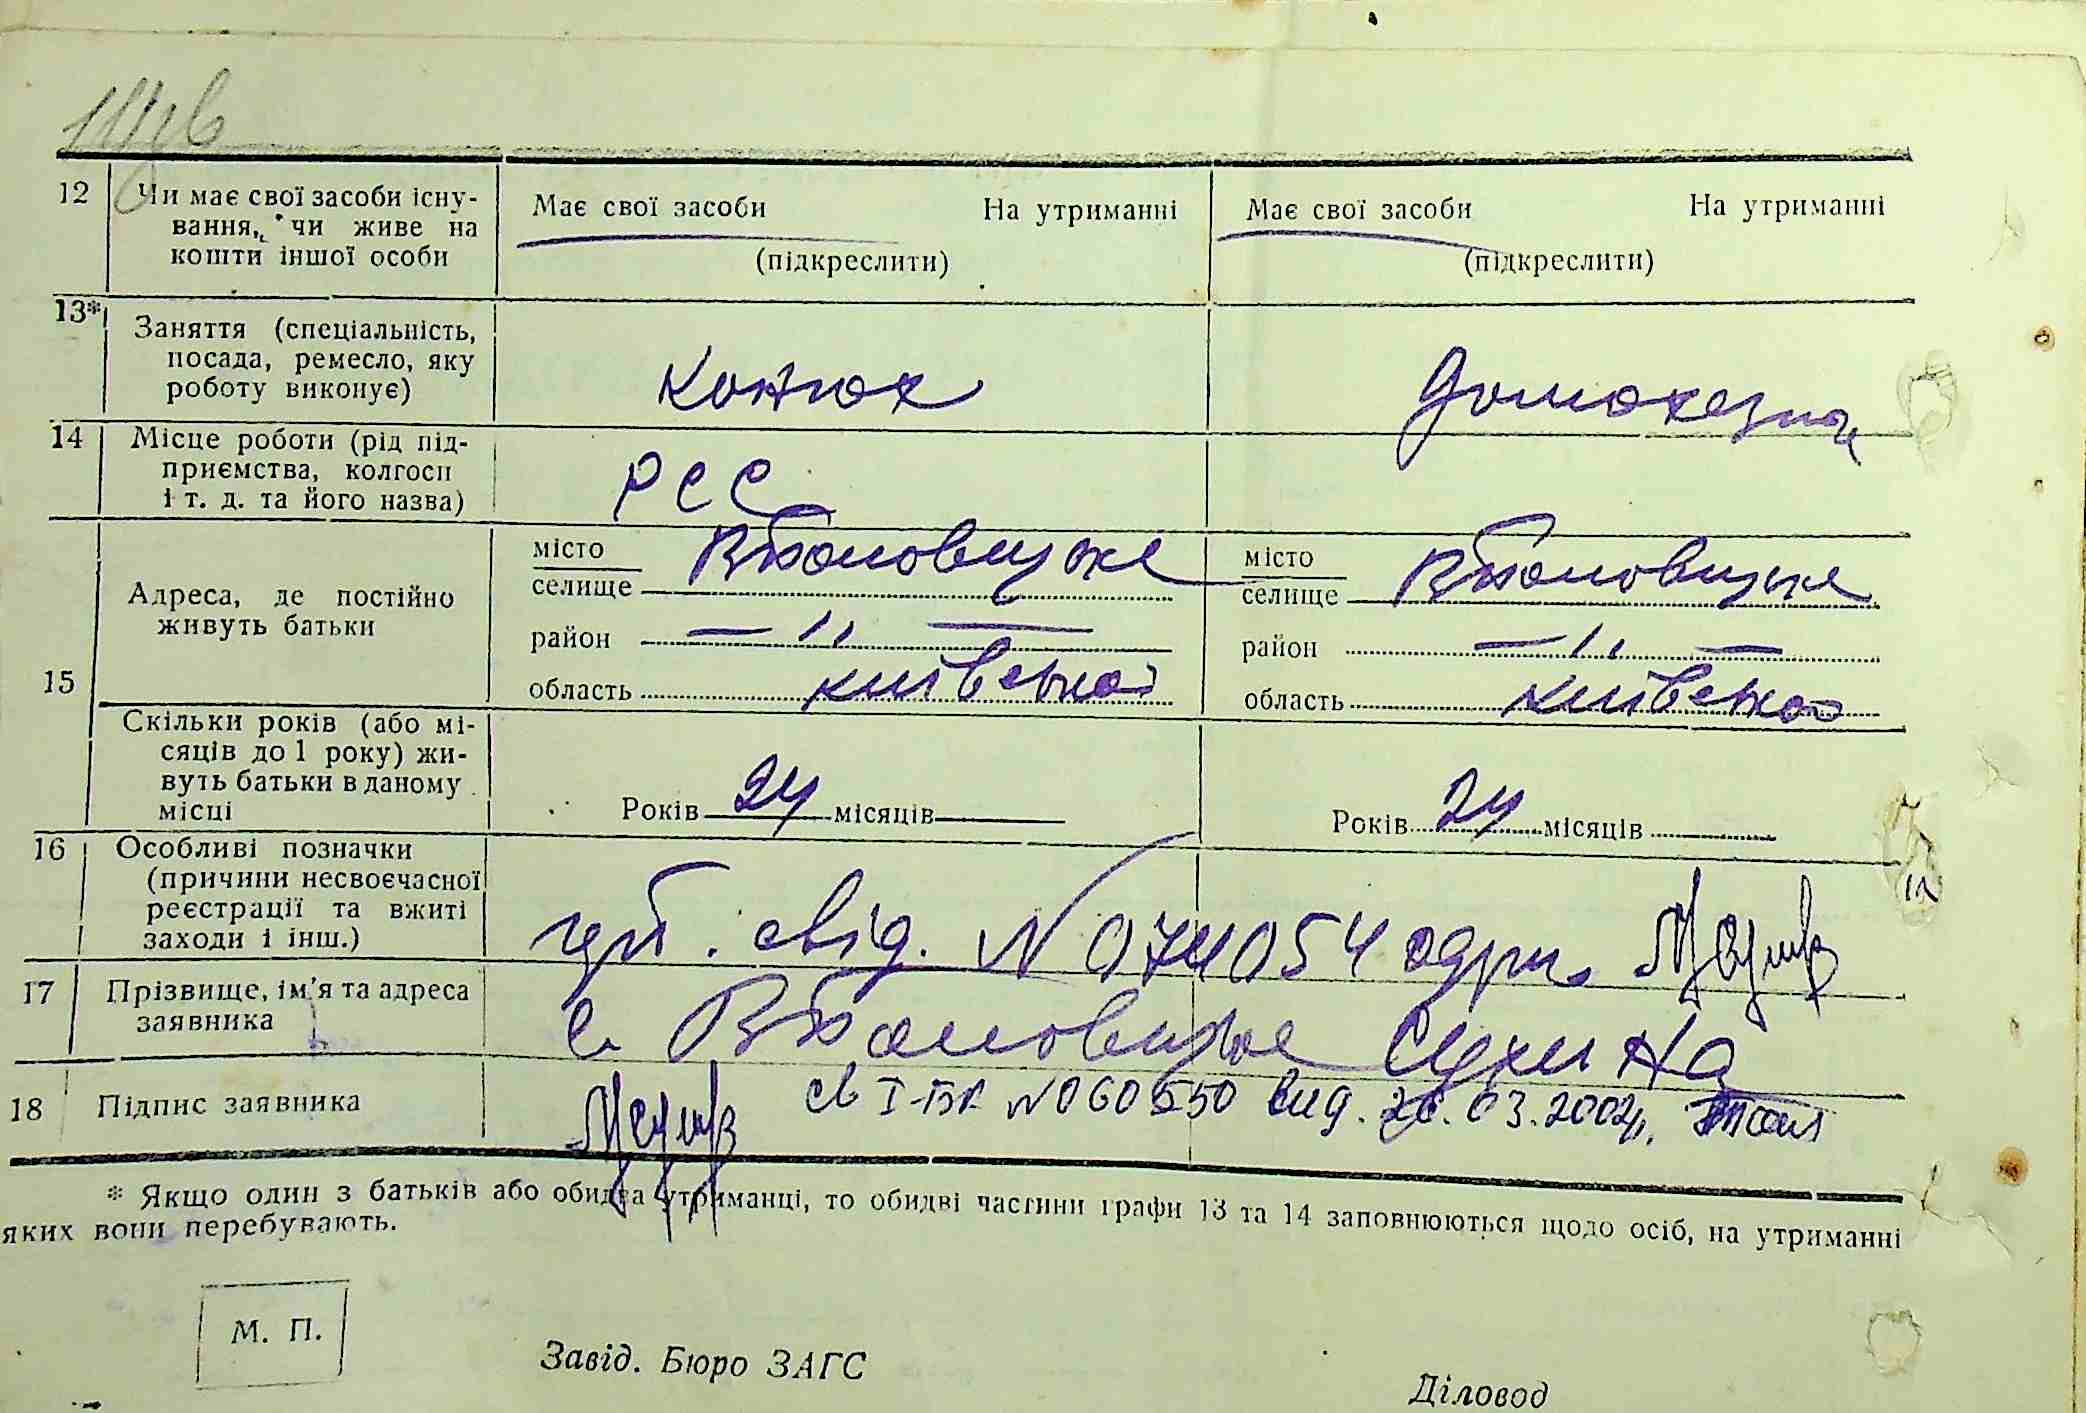 12 Чи має свої засоби існу-
вання, чи живе на
кошти іншої особи
Має свої засоби На утриманні
(підкреслити)
Має свої засоби На утриманні
(підкреслити)
13* Заняття (спеціальність,
посада, ремесло, яку
роботу виконує)
конюх
домохазяй
14 Місце роботи (рід під-
приємства, колгосп
і т. д. та його назва)
РСС
15 Адреса, де постійно
живуть батьки
місто
селище
район — ,, —
область київської
місто
селище
район — ,, —
область київської
Скільки років (або мі-
сяців до 1 року) жи-
вуть батьки в даному
місці
Років 24 місяців
Років 24 місяців
16 Особливі позначки
(причини несвоєчасної
реєстрації та вжиті
заходи і інш.)
свід. N 074054 одрж.
17 Прізвище, ім'я та адреса
заявника
с.
18 Підпис заявника
св І-БК N060550 вид. 26.03.2002р.
* Якщо один з батьків або обидва утриманці, то обидві частини графи 13 та 14 заповнюються щодо осіб, на утриманні
яких вони перебувають.
М. П.
Завід. Бюро ЗАГС
Діловод